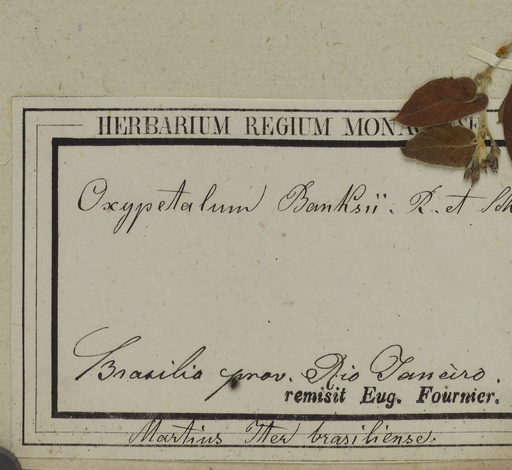 HERBARIUM REGIUM
Oxypetalum Banksii. R. et Sch
Brasilia prov. Rio Janeiro.
remisit Eug. Fournier.
Martius Iter brasiliense.